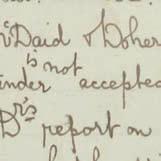 McDaid & Doher
is not
under accepted
Dr's report on